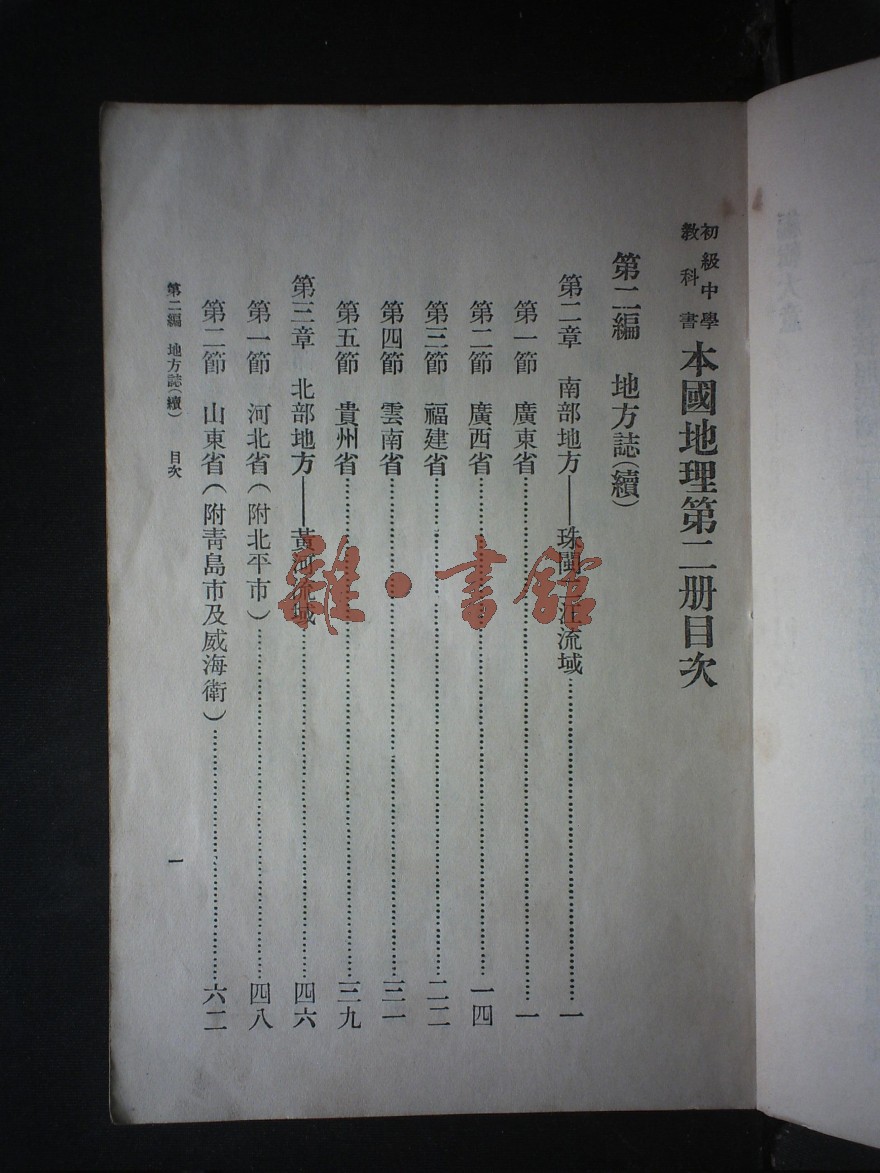 初級中學
教科書
本國地理第二册目次
第二編 地方誌(續)
第二章 南部地方——珠閩二江流域…………一
第一節 廣東省…………一
第二節 廣西省…………一四
第三節 福建省…………二二
第四節 雲南省…………三一
第五節 貴州省…………三九
第三章 北部地方——黃河流域…………四六
第一節 河北省(附北平市)…………四八
第二節 山東省(附靑島市及威海衛)…………六二
第二編 地方誌(續) 目次 一
雜·書館